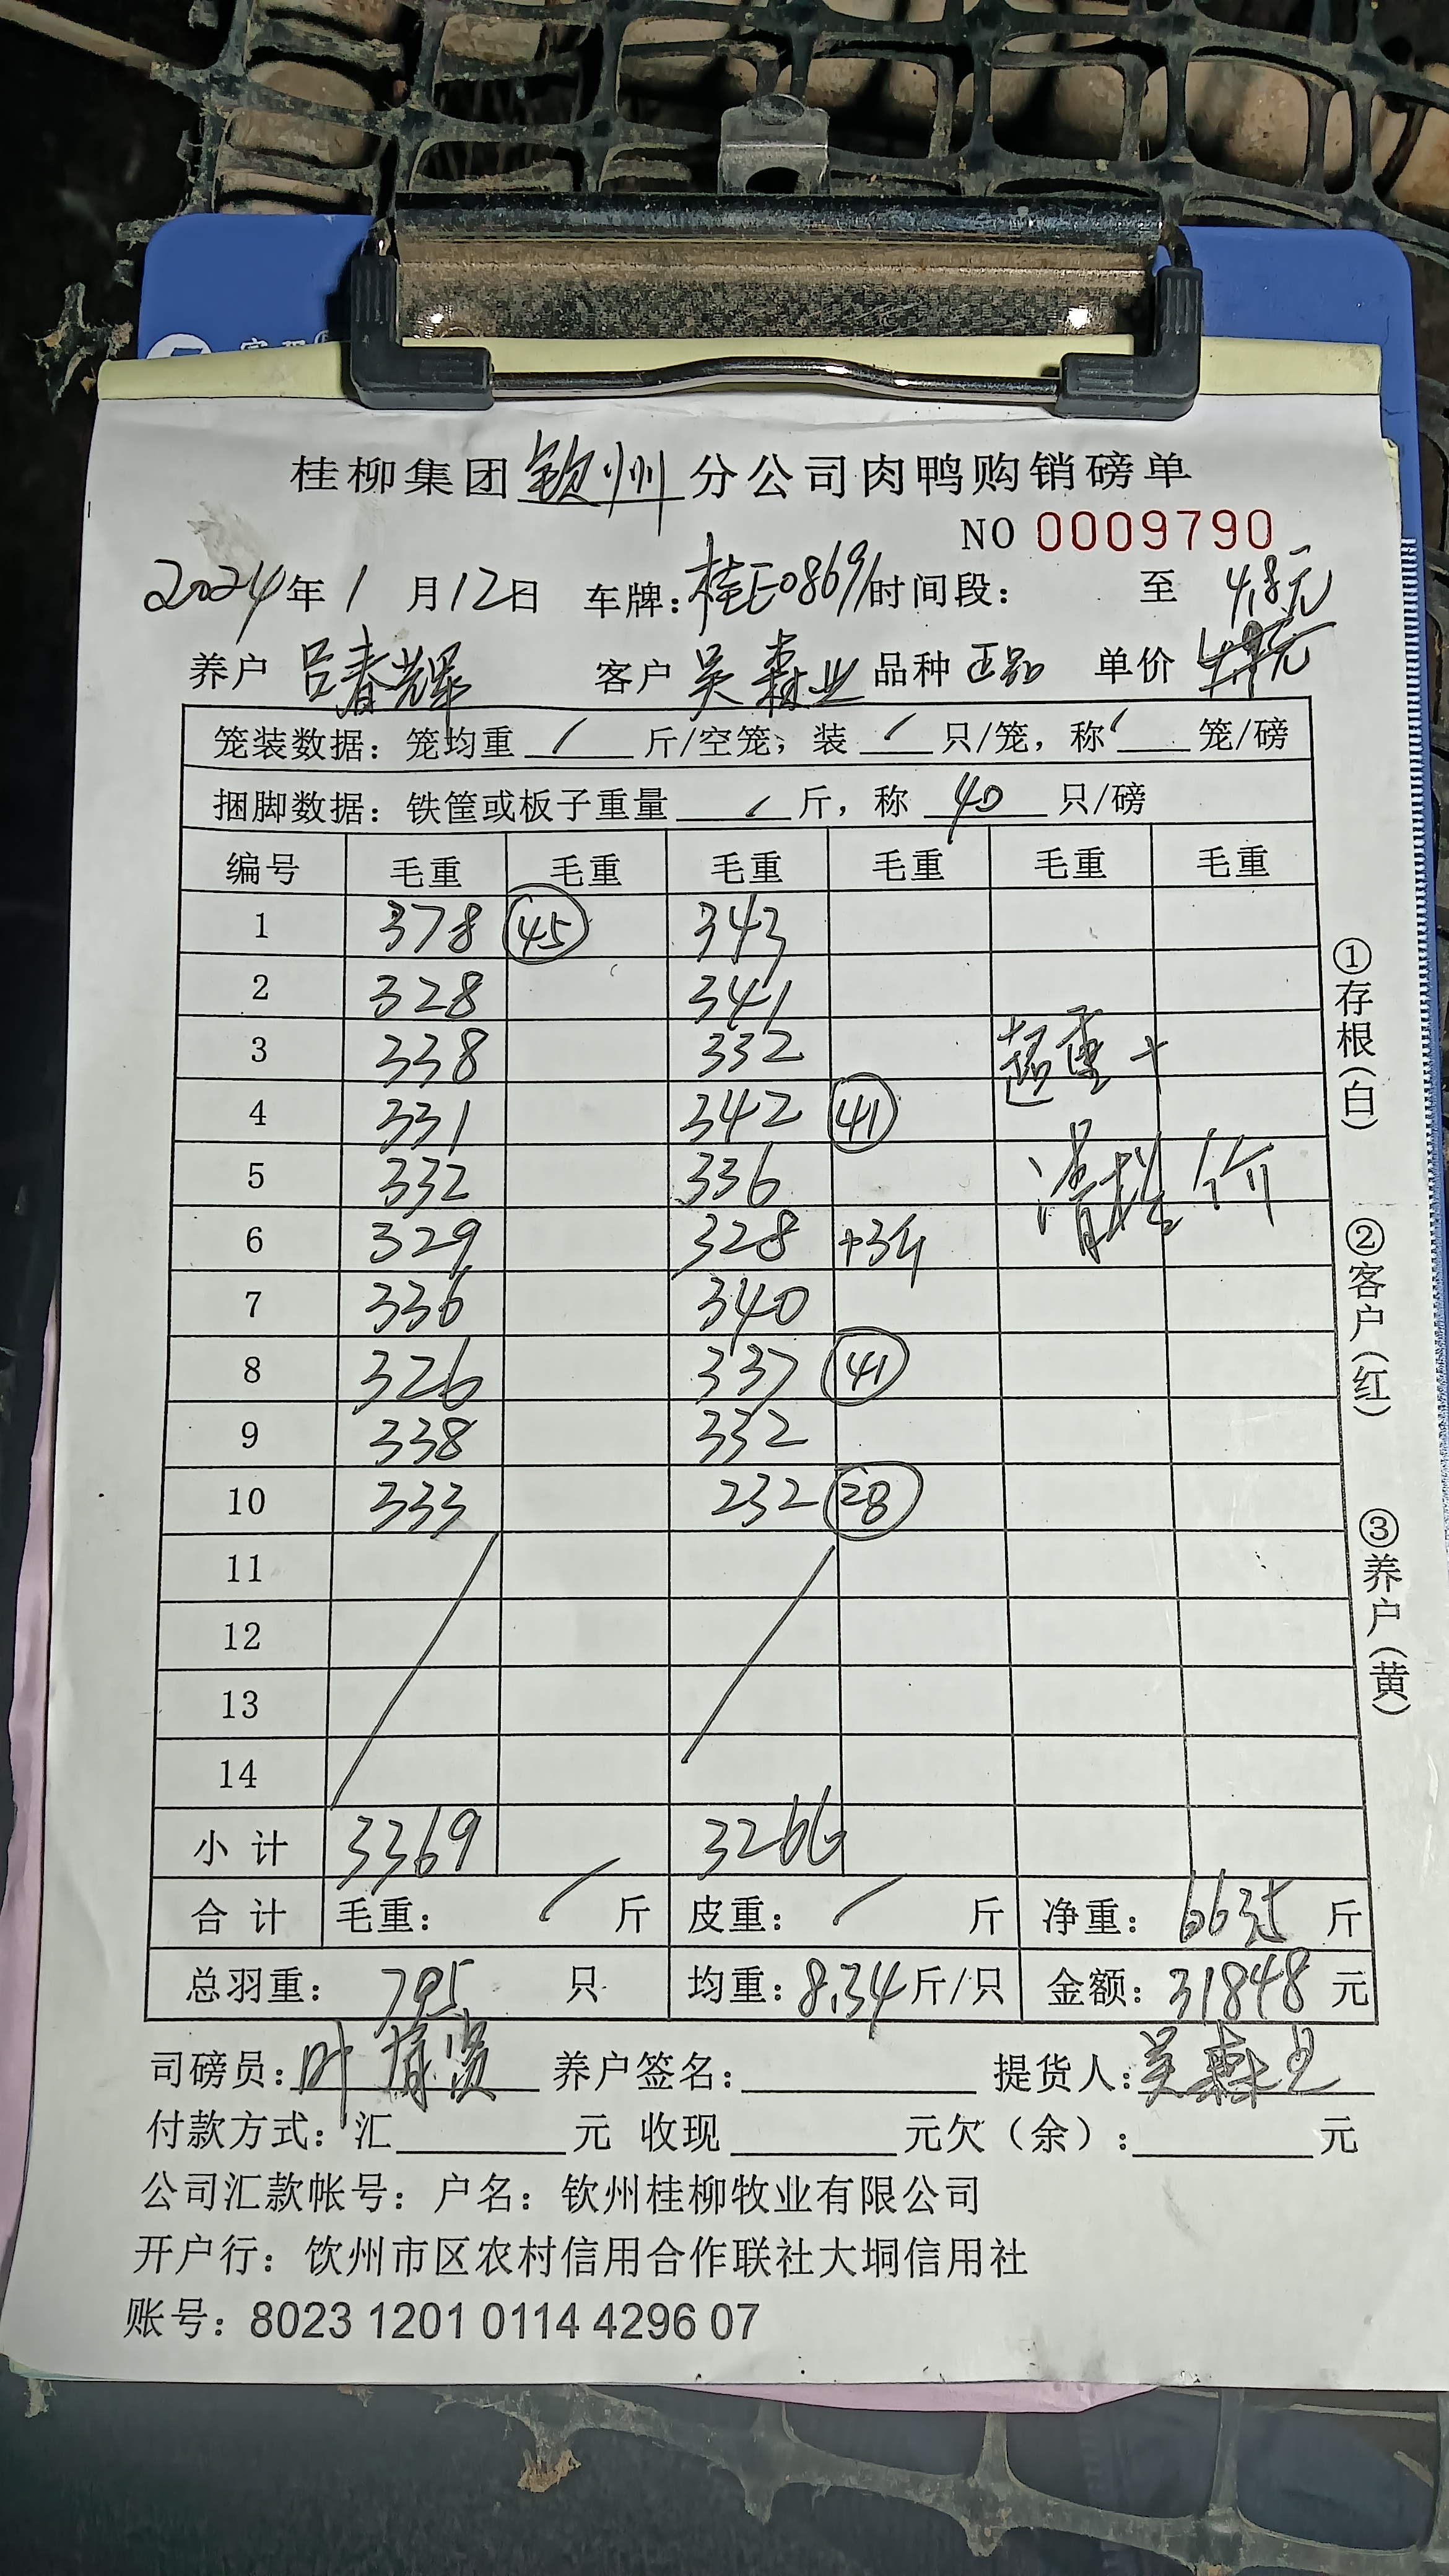 桂柳集团钦州分公司肉鸭购销磅单
NO 0009790
2024年1月12日 车牌:桂E08691时间段: 至 4.8元
养户 吕春辉 客户 吴森业 品种 正品 单价
笼装数据: 笼均重 / 斤/空笼; 装 / 只/笼, 称 / 笼/磅
捆脚数据: 铁筐或板子重量 / 斤, 称 40 只/磅
编号 毛重 毛重 毛重 毛重 毛重 毛重
1 378 45 343
2 328 341
3 338 332
4 331 342 41
5 332 336
6 329 328 +3斤
7 336 340
8 326 337 41
9 338 332
10 333 232 28
11
12
13
14
超重+
清栏价
小计 3369 3266
合计 毛重: / 斤 皮重: / 斤 净重: 6635 斤
总羽重: 795 只 均重: 8.34斤/只 金额: 31848 元
司磅员: 叶 养户签名: 提货人: 吴森业
付款方式: 汇 元 收现 元欠(余): 元
公司汇款帐号: 户名: 钦州桂柳牧业有限公司
开户行: 钦州市区农村信用合作联社大垌信用社
账号: 8023 1201 0114 4296 07
①存根(白)
②客户(红)
③养户(黄)